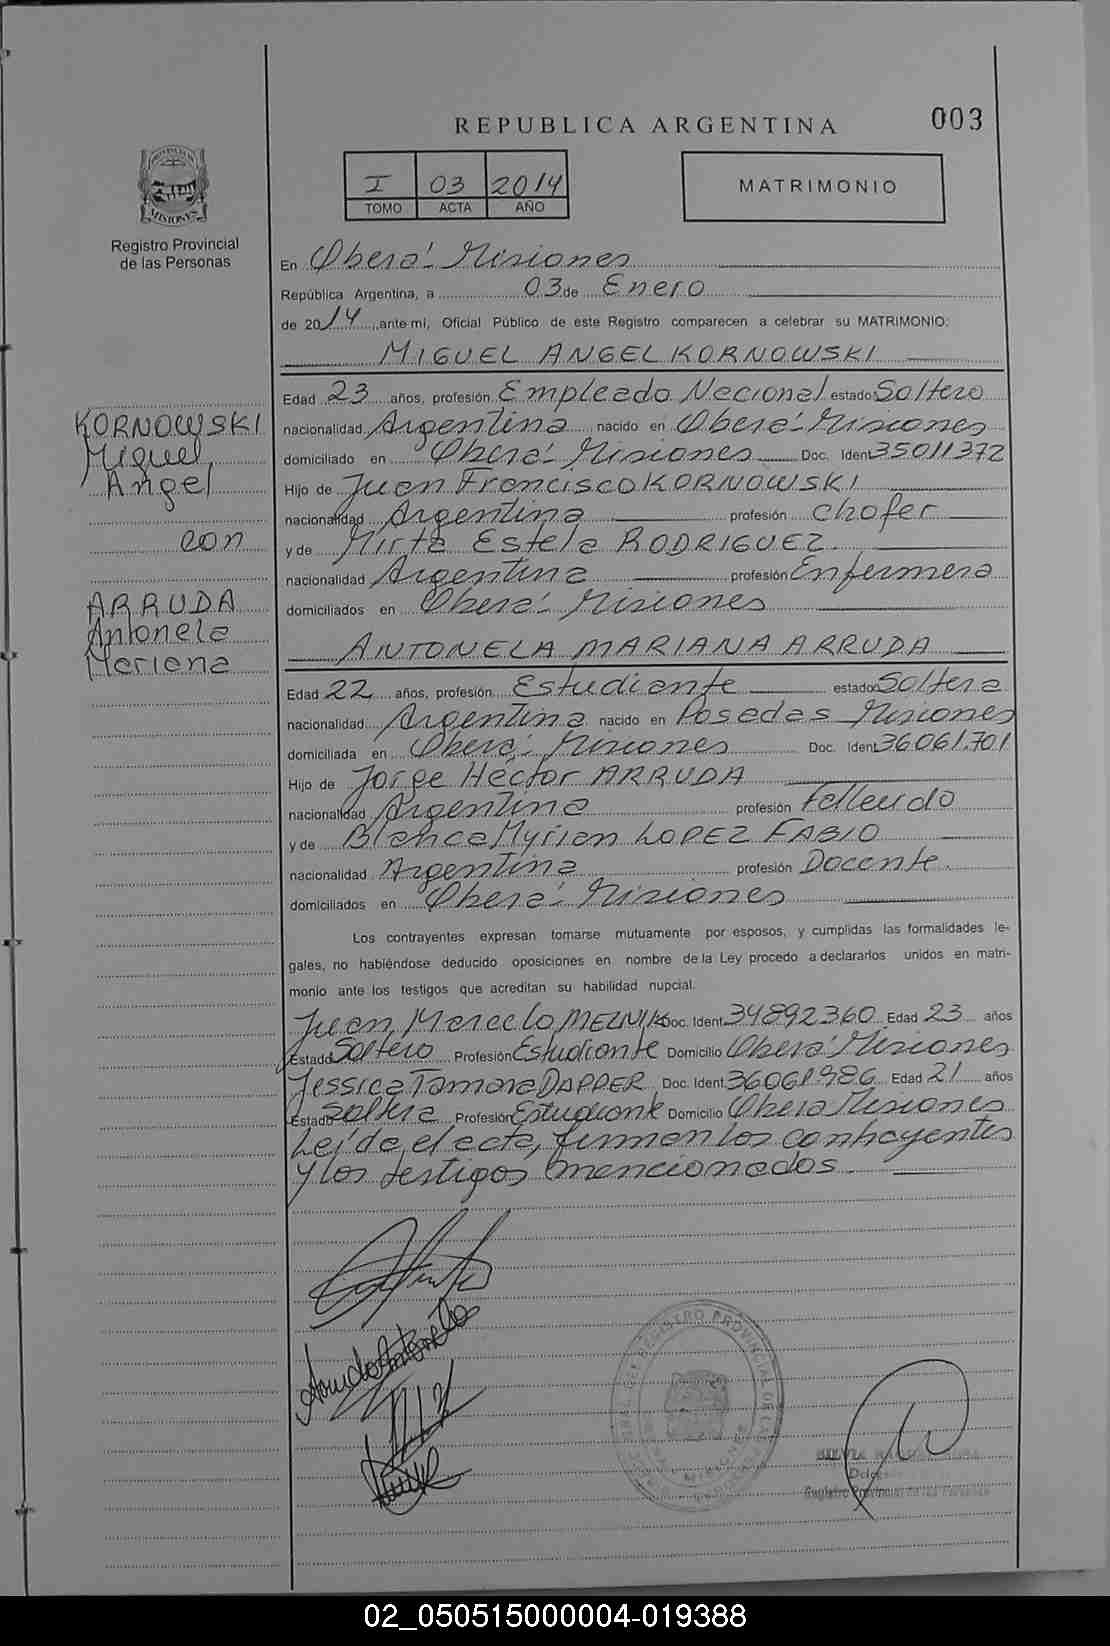 REPUBLICA ARGENTINA
003
I 03 2014
TOMO ACTA AÑO
MATRIMONIO
PROVINCIA DE
MISIONES
Registro Provincial
de las Personas
En Oberá - Misiones
República Argentina, a 03 de Enero
de 2014, ante mi, Oficial Público de este Registro comparecen a celebrar su MATRIMONIO:
MIGUEL ANGEL KORNOWSKI
Edad 23 años, profesión Empleado Nacional estado Soltero
nacionalidad Argentina nacido en Oberá - Misiones
domiciliado en Oberá - Misiones Doc. Ident 35011372
Hijo de Juan Francisco KORNOWSKI
nacionalidad Argentina profesión Chofer
y de Mirta Estela RODRIGUEZ.
nacionalidad Argentina profesión Enfermera
domiciliados en Oberá - Misiones
ANTONELA MARIANA ARRUDA
Edad 22 años, profesión Estudiante estado Soltera
nacionalidad Argentina nacido en Posadas Misiones
domiciliada en Oberá - Misiones Doc. Ident 36061.701
Hijo de Jorge Héctor ARRUDA
nacionalidad Argentina profesión Fallecido
y de Blanca Myrian LOPEZ FABIO
nacionalidad Argentina profesión Docente.
domiciliados en Oberá - Misiones
KORNOWSKI
Miguel,
Angel
con
ARRUDA
Antonela
Mariana
Los contrayentes expresan tomarse mutuamente por esposos, y cumplidas las formalidades le-
gales, no habiéndose deducido oposiciones en nombre de la Ley procedo a declararlos unidos en matri-
monio ante los testigos que acreditan su habilidad nupcial.
Juan Marcelo MELNIK Doc. Ident. 34892360 Edad 23 años
Estado Soltero Profesión Estudiante Domicilio Oberá Misiones
Jessica Tamara DAPPER Doc. Ident. 36061986 Edad 21 años
Estado Soltera Profesión Estudiante Domicilio Oberá Misiones
Leída el acta, firman los contrayentes
y los testigos mencionados.
Arruda Antonela
REGISTRO PROVINCIAL DE LAS
MISIONES
SILVIA
Registro Provincial de las Personas
02_050515000004-019388